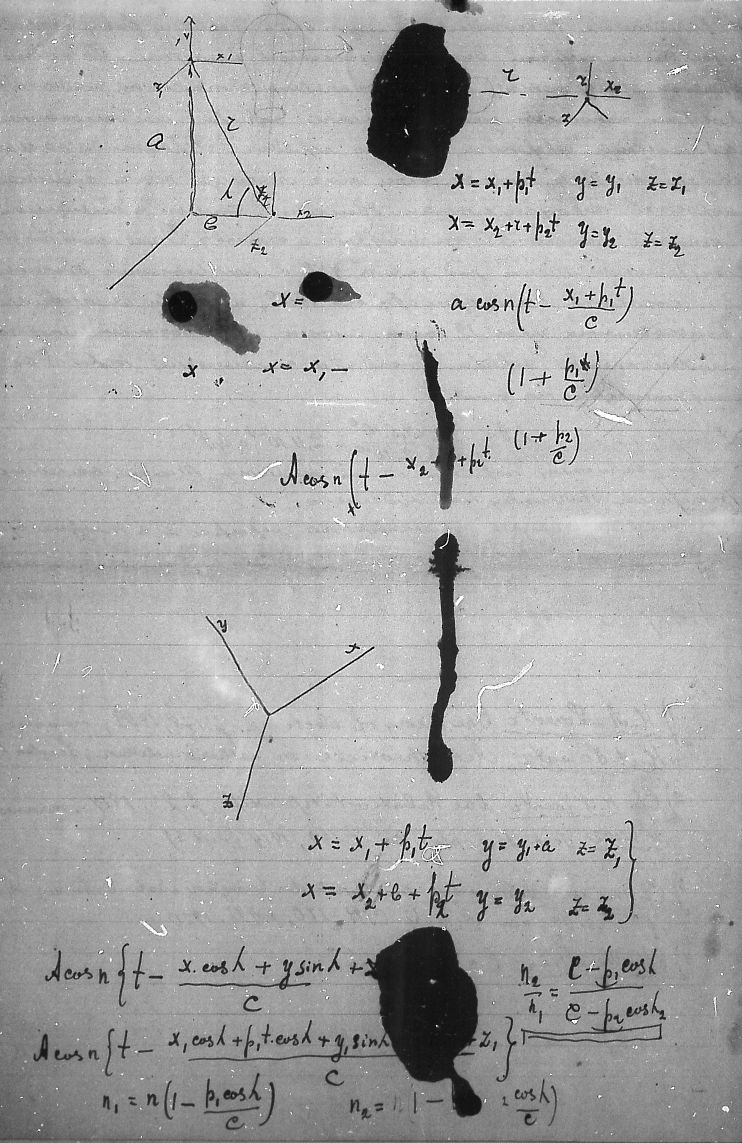 y x₁
z₁
a
r
λ
e
x₂
z₂
r
r x₂
z
x = x₁ + p₁t y = y₁ z = z₁
x = x₂ + r + p₂t y = y₂ z = z₂
x =
a cos n(t − (x₁ + p₁t)/c)
x x = x₁ −
(1 + p₁/c)
(1 + p₂/c)
A cos n(t − x₂ + p₂t
y
x
z
x = x₁ + p₁t y = y₁ + a z = z₁ }
x = x₂ + e + p₂t y = y₂ z = z₂ }
A cos n{t − (x.cosλ + y sinλ + z)/c
n₂/n₁ = (c − p₁cosλ)/(c − p₂cosλ₂)
A cos n{t − (x₁cosλ + p₁t.cosλ + y₁sinλ + z₁)/c}
n₁ = n(1 − p₁cosλ/c) n₂ = n(1 − ₂cosλ/c)